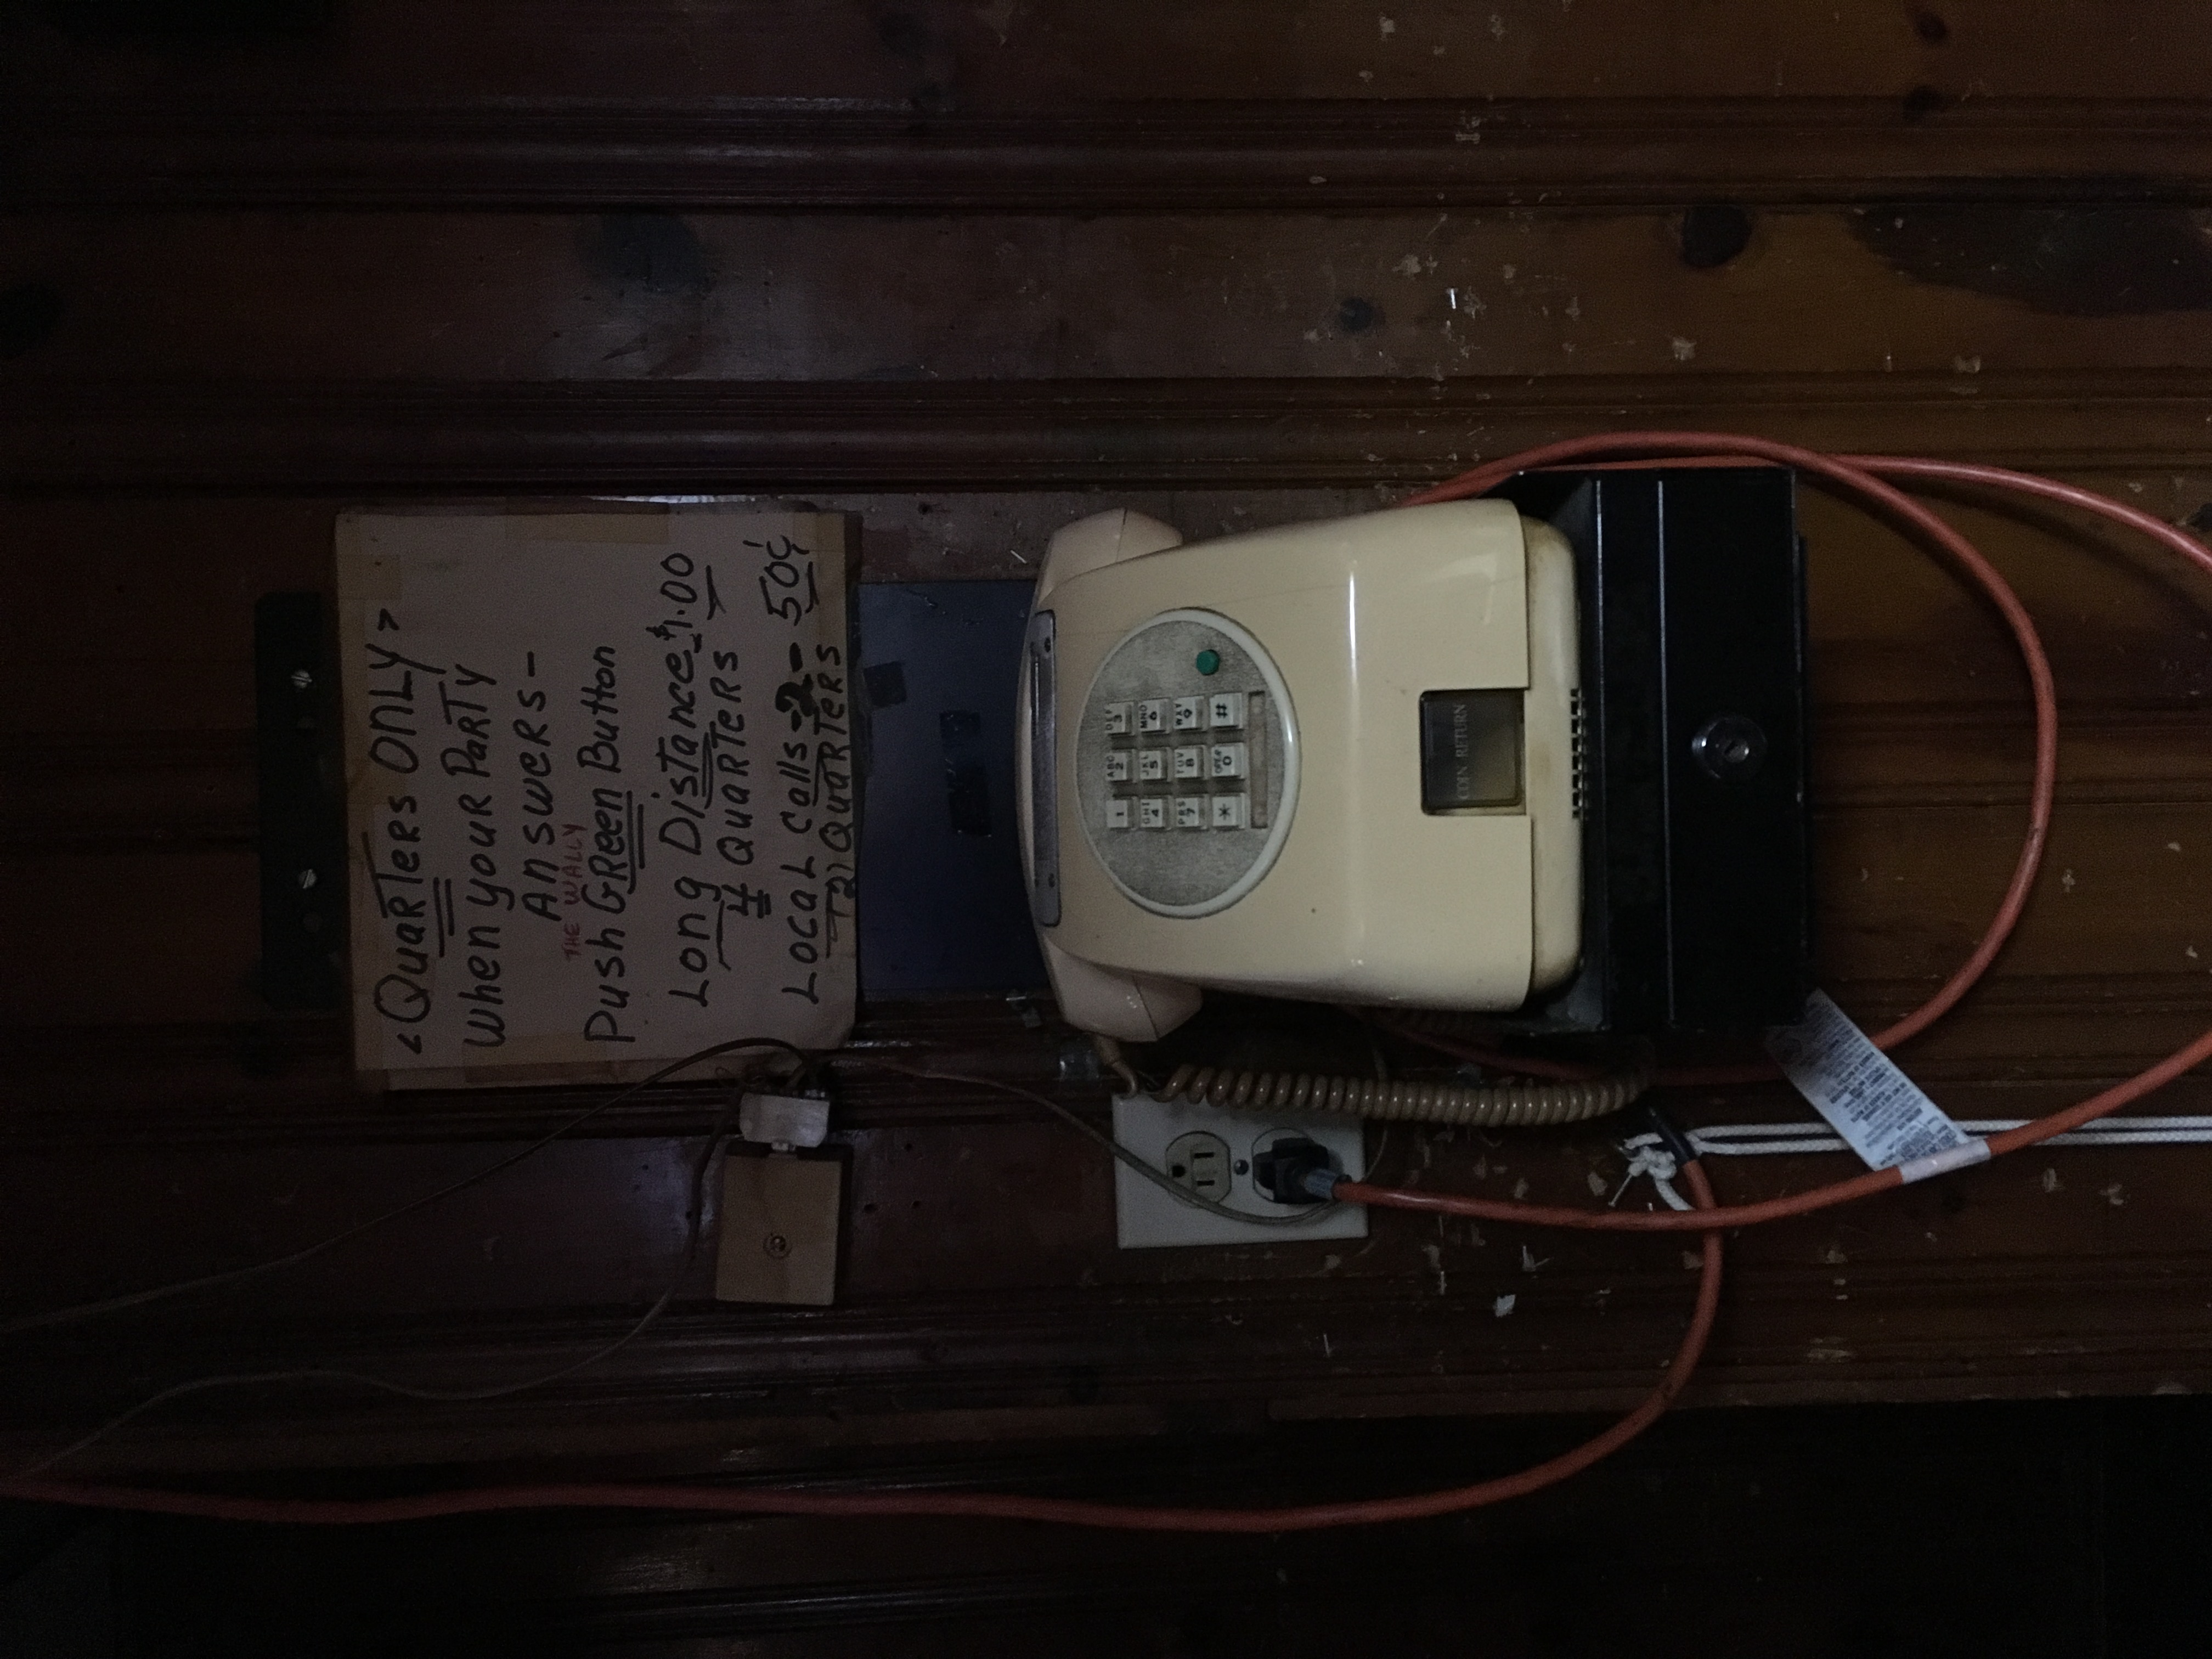 < QuaRTeRs ONLY >
When youR PaRTY
ANSWeRS-
THE WALLY
Push GReen Button
Long Distance $1.00
4 QuaRTeRs
LocaL Calls -2- 50¢
(2) QuaRTeRs
1
ABC 2
DEF 3
GHI 4
JKL 5
MNO 6
PRS 7
TUV 8
WXY 9
*
OPER 0
#
COIN RETURN